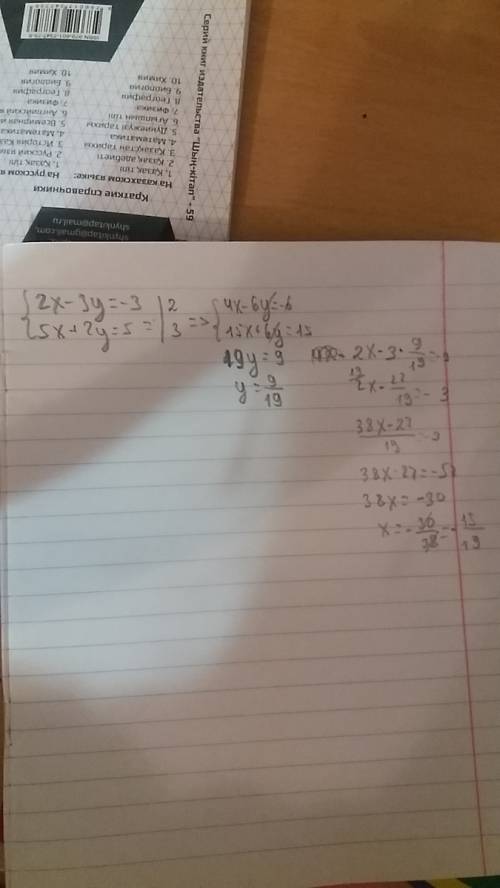 ISBN 978-601-7547-75-5
Серий книг издательства "Шың-кітап" - 59
Краткие справочники
На казахском языке:
1. Қазақ тілі
2. Қазақ әдебиеті
3. Қазақстан тарихы
4. Математика
5. Дүниежүзі тарихы
6. Ағылшын тілі
7. Физика
8. География
9. Биология
10. Химия
На русском
1. Қазақ тілі
2. Русский язы
3. История Каза
4. Математика
5. Всемирная и
6. Английский
7. Физика
8. География
9. Биология
10. Химия
shynkitap@mail.ru
shynkitap@gmail.com,
{2x-3y=-3 | 2
{5x+2y=5 = | 3
=> {4x-6y=-6
{15x+6y=15
19y=9
y= 9/19
2x-3· 9/19 =-3
2x- 27/19 =-3
(38x-27)/19 =-3
38x-27=-57
38x=-30
x=- 30/38 =- 15/19